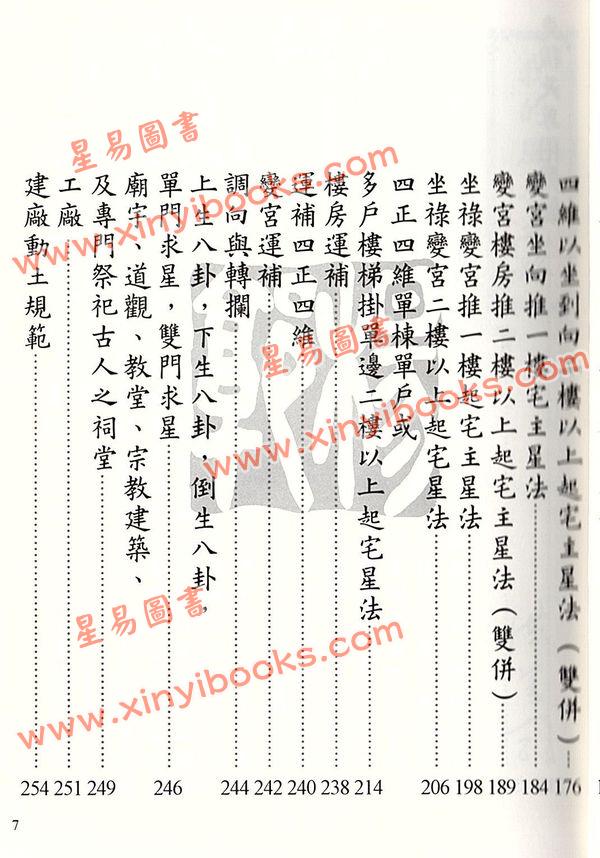 四維以坐到向二樓以上起宅主星法(雙併)…176
變宮坐向推一樓宅主星法…184
變宮樓房推二樓以上起宅主星法(雙併)…189
坐祿變宮推一樓起宅主星法…198
坐祿變宮二樓以上起宅星法…206
四正四維單棟單戶或
多戶樓梯掛單邊二樓以上起宅星法…214
樓房運補…238
運補四正四維…240
變宮運補…242
調向與轉欄…244
上生八卦,下生八卦,倒生八卦,
單門求星,雙門求星…246
廟宇、道觀、教堂、宗教建築、
及專門祭祀古人之祠堂…249
工廠…251
建廠動土規範…254
7
星易圖書
www.xinyibooks.com
星易圖書
www.xinyibooks.com
星易圖書
www.xinyibooks.com